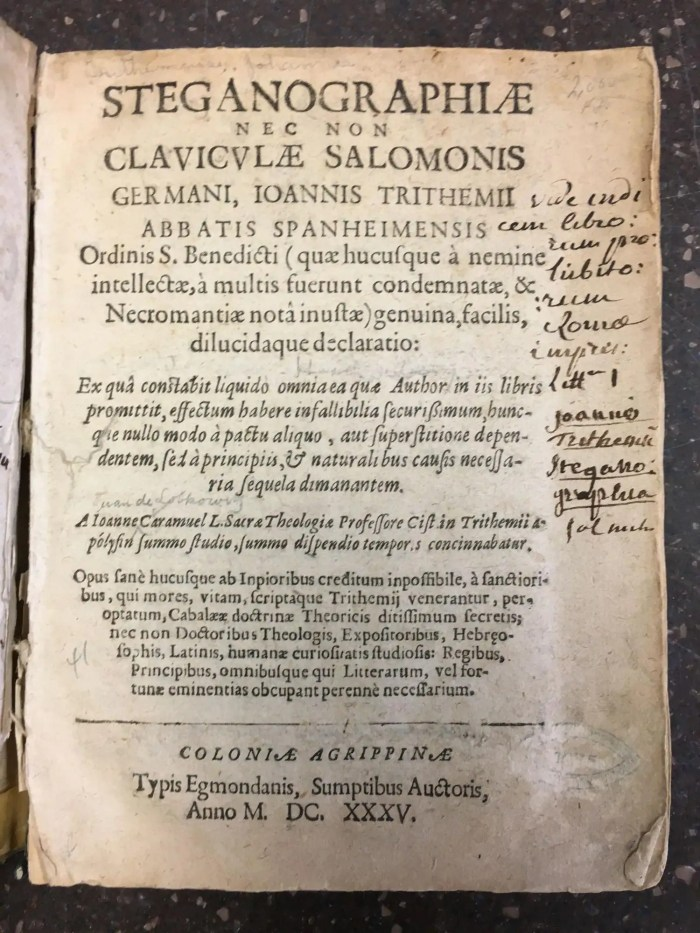 STEGANOGRAPHIÆ
NEC NON
CLAVICVLÆ SALOMONIS
GERMANI, IOANNIS TRITHEMII
ABBATIS SPANHEIMENSIS
Ordinis S. Benedicti (quæ hucuſque à nemine
intellectæ, à multis fuerunt condemnatæ, &
Necromantiæ notâ inuſtæ) genuina, facilis,
dilucidaque declaratio:
Ex quâ conſtabit liquido omnia ea quæ Author in iis libris
promittit, effectum habere infallibilia ſecurißimum, hunc-
que nullo modo à pactu aliquo, aut ſuperſtitione depen-
dentem, ſed à principiis, & naturalibus cauſis neceſſa-
ria ſequela dimanantem.
A Ioanne Caramuel L. Sacræ Theologiæ Profeſſore Ciſt. in Trithemii a-
pólyſin ſummo ſtudio, ſummo diſpendio temporis concinnabatur.
Opus ſanè hucuſque ab Inpioribus creditum inpoſſibile, à ſanctiori-
bus, qui mores, vitam, ſcriptaque Trithemij venerantur, per-
optatum, Cabalææ doctrinæ Theoricis ditiſſimum ſecretis;
nec non Doctoribus Theologis, Expoſitoribus, Hebręo-
ſophis, Latinis, humanæ curioſitatis ſtudioſis: Regibus,
Principibus, omnibuſque qui Litterarum, vel for-
tunæ eminentias obcupant perennè neceſſarium.
COLONIÆ AGRIPPINÆ
Typis Egmondanis, Sumptibus Auctoris,
Anno M. DC. XXXV.
vide indi
cem libro:
rum pro:
hibito:
rum
Romæ
impres:
Litt. I
Joannis
Trithemii
Stegano:
graphia